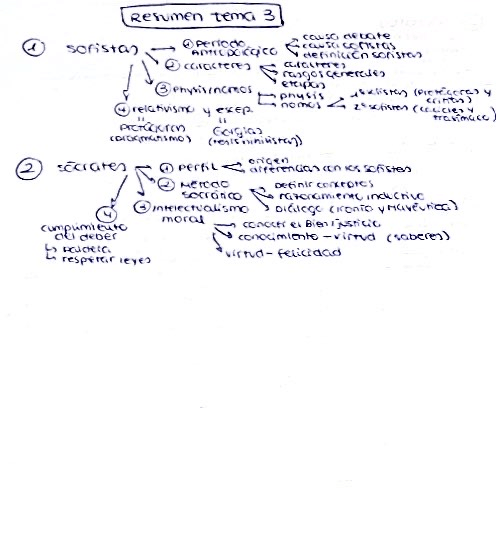 Resumen tema 3
① sofistas → ① Período antropológico
causa debate
causa sofistas
definición sofistas
② caracteres
caracteres
rasgos generales
etapas
③ physis/nomos
physis
nomos
1ª sofistas (Protágoras y
2ª sofistas (Calicles y
Trasímaco)
④ relativismo y escep.
Protágoras
(pragmatismo)
Gorgias
② Sócrates → ① Perfil
origen
diferencias con los sofistas
② Método socrático
Definir conceptos
razonamiento inductivo
Diálogo (ironía y Mayéutica)
③ Intelectualismo moral
conocer el Bien/justicia
conocimiento - virtud (saberes)
virtud - felicidad
④ cumplimiento
del deber
↳ Paideia
↳ respetar leyes